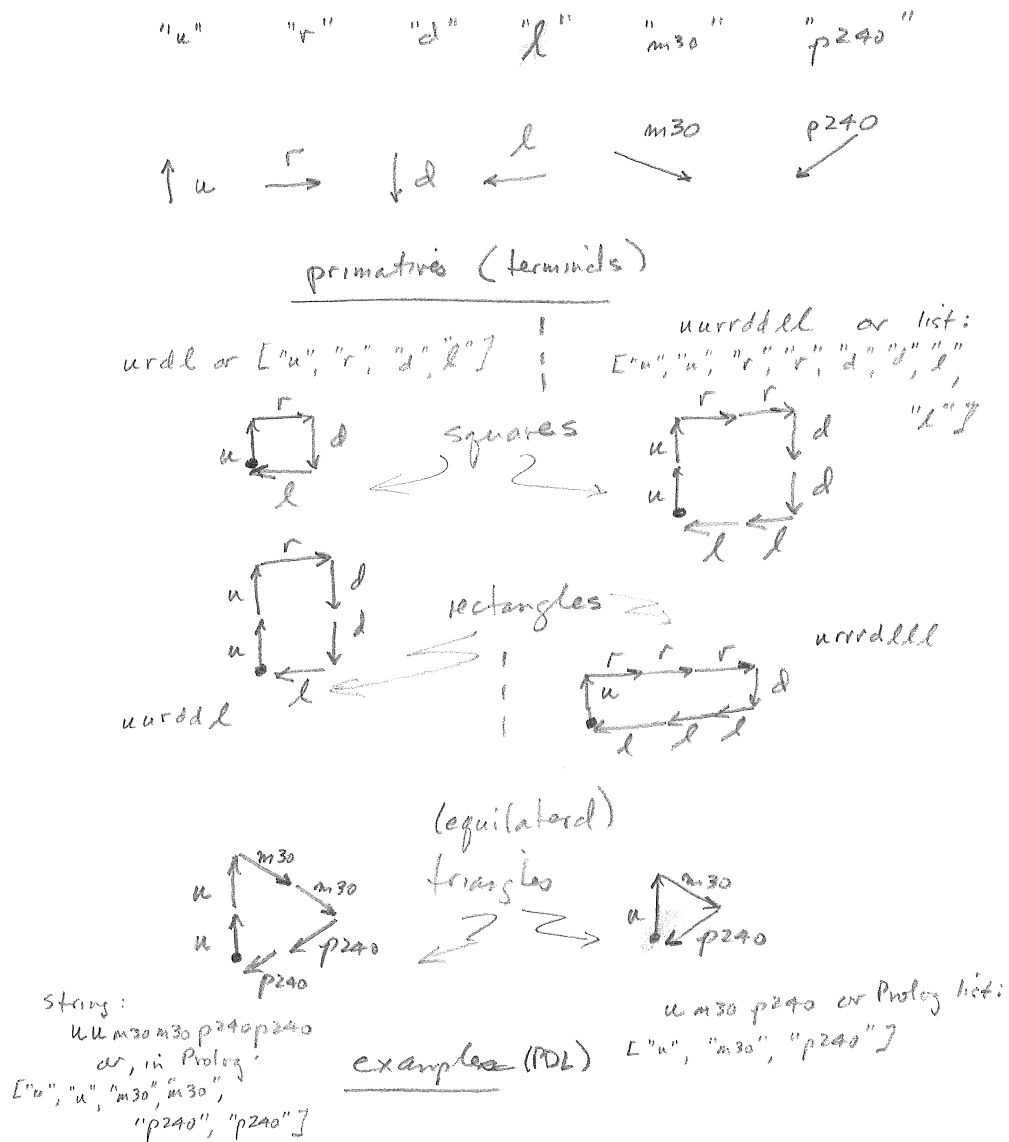 "u" "r" "d" "l" "m30" "p240"
u r d l m30 p240
primatives (terminals)
urdl or ["u", "r", "d", "l"]
uurrddll or list:
["u", "u", "r", "r", "d", "d", "l",
"l"]
r
u d
l
squares
r r
u d
u d
l l
r
u d
u d
l
rectangles
uurddl
urrrdlll
r r r
u d
l l l
(equilateral)
triangles
m30
u m30
u p240
p240
m30
u p240
string:
uum30m30p240p240
or, in Prolog:
["u", "u", "m30", "m30",
"p240", "p240"]
u m30 p240 or Prolog list:
["u", "m30", "p240"]
examples (PDL)